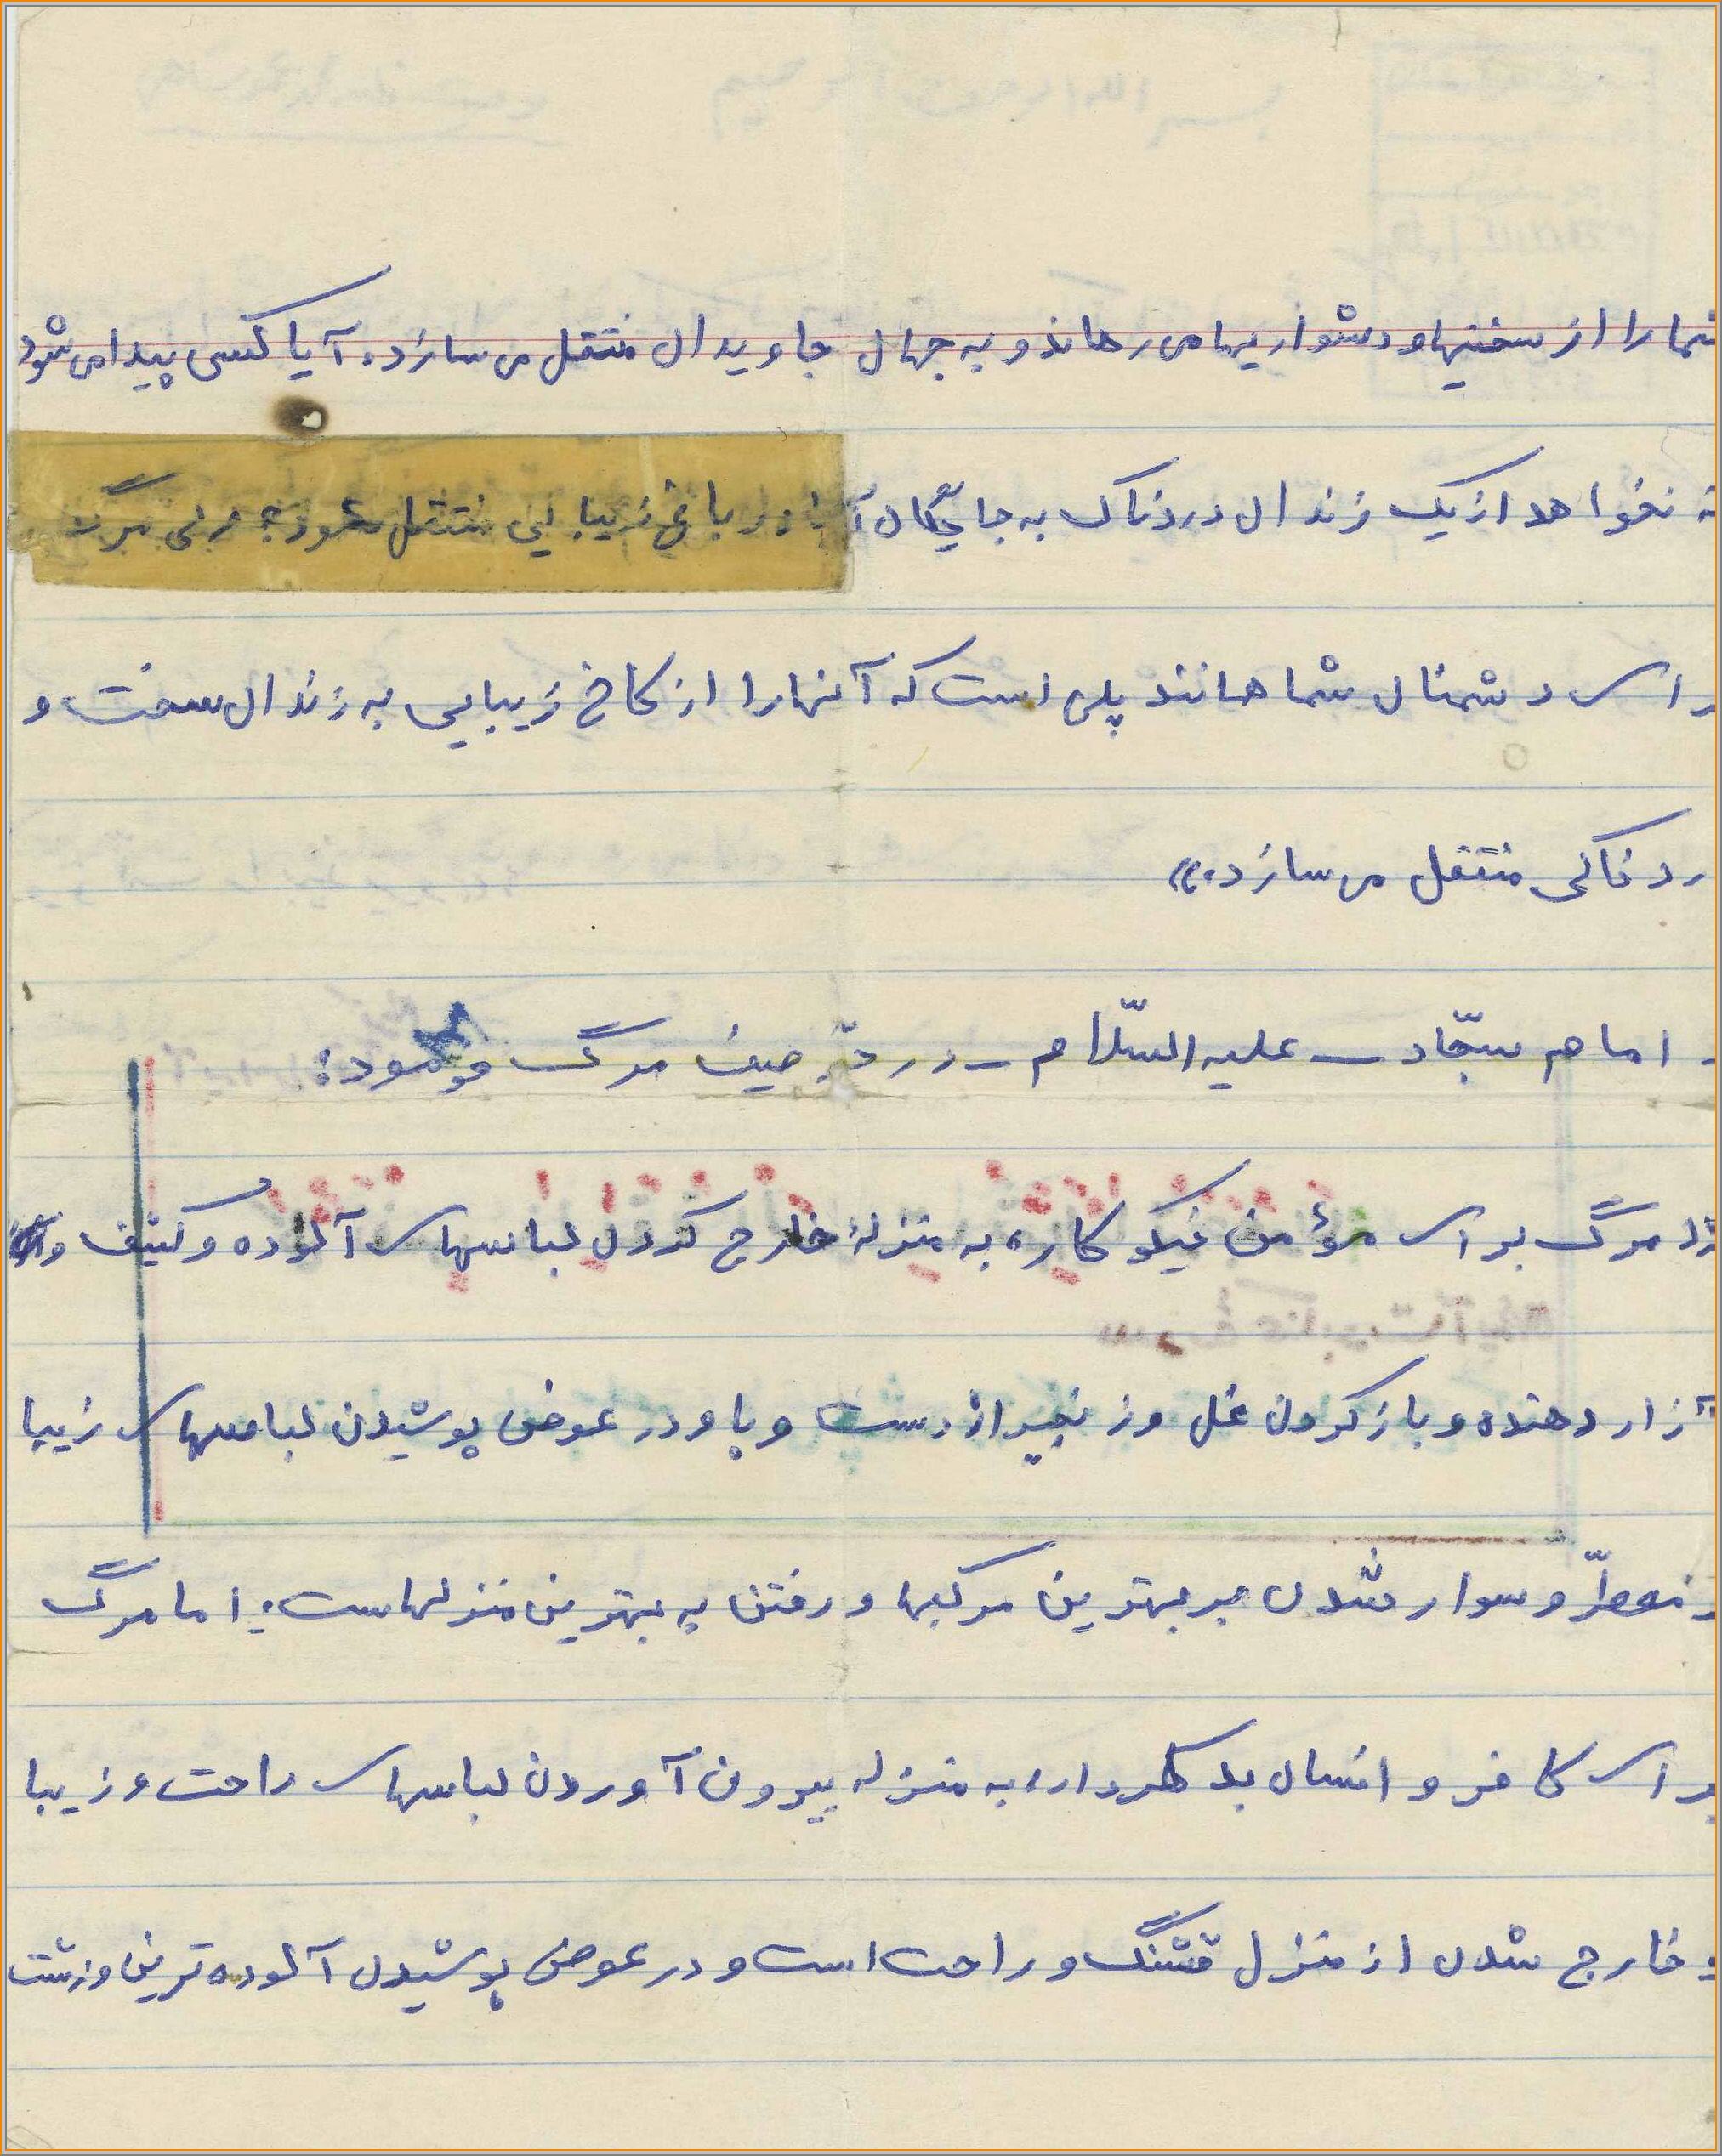 شما را از سختیها و دشواریها می رهاند و به جهان جاویدان منتقل می سازد. آیا کسی پیدا می شود
که نخواهد از یک زندان دردناک به جایگان در باغ زیبایی منتقل شود؟ ولی مرگ
برای دشمنان شما همانند پلی است که آنها را از کاخ زیبایی به زندان سخت و
دردناکی منتقل می سازد.»
امام سجّاد – علیه السّلام – در توصیف مرگ فرمود:
مرگ برای مؤمن نیکو کار، به منزلهٔ خارج کردن لباسهای آلوده و کثیف و
آزار دهنده و باز کردن غل و زنجیر از دست و پا و در عوض پوشیدن لباسهای زیبا
و معطّر و سوار شدن بر بهترین مرکبها و رفتن به بهترین منزلهاست. اما مرگ
برای کافر و انسان بد کردار، به منزله بیرون آوردن لباسهای راحت و زیبا
و خارج شدن از منزل قشنگ و راحت است و در عوض پوشیدن آلوده ترین و زشت